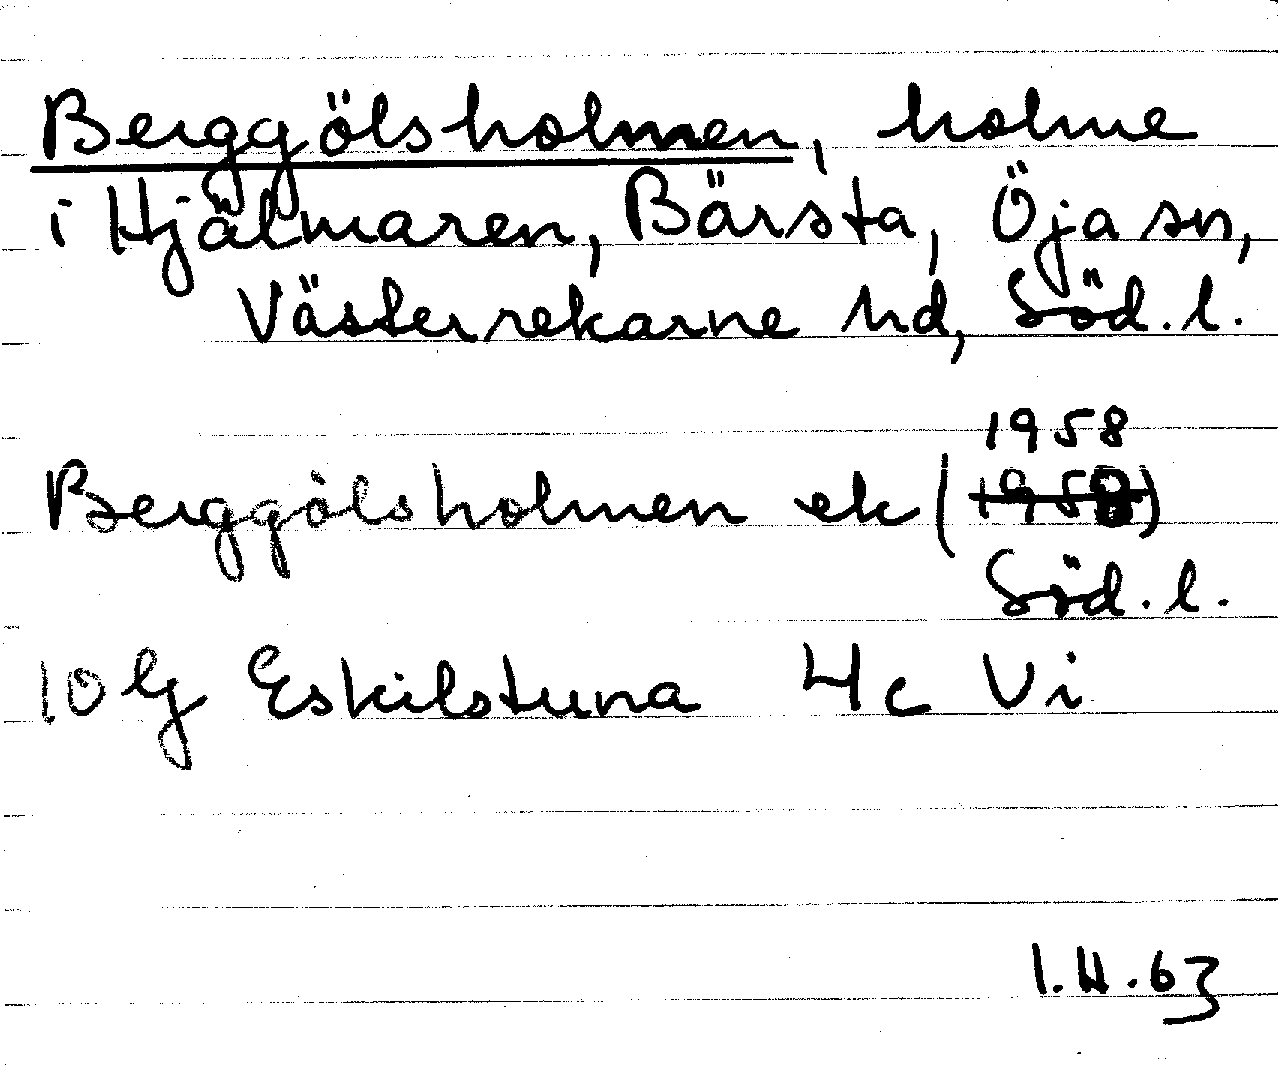 Berggölsholmen, holme
i Hjälmaren, Bärsta, Öja sn,
Västerrekarne hd, Söd. l.
1958
Berggölsholmen ek (1958)
Söd. l.
10 G Eskilstuna 4c Vi
1.II.63